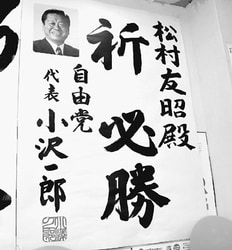 松村友昭殿
祈必勝
自由党
代表 小沢一郎